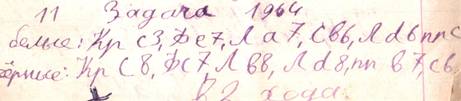 11 Задача 1964
белые: Кр c3, Фe7, Ла7, Cв6, Лd6 пп c
чёрные: Кр C8, Фc7, Л в8, Лd8, пп в7, c6
в 2 хода